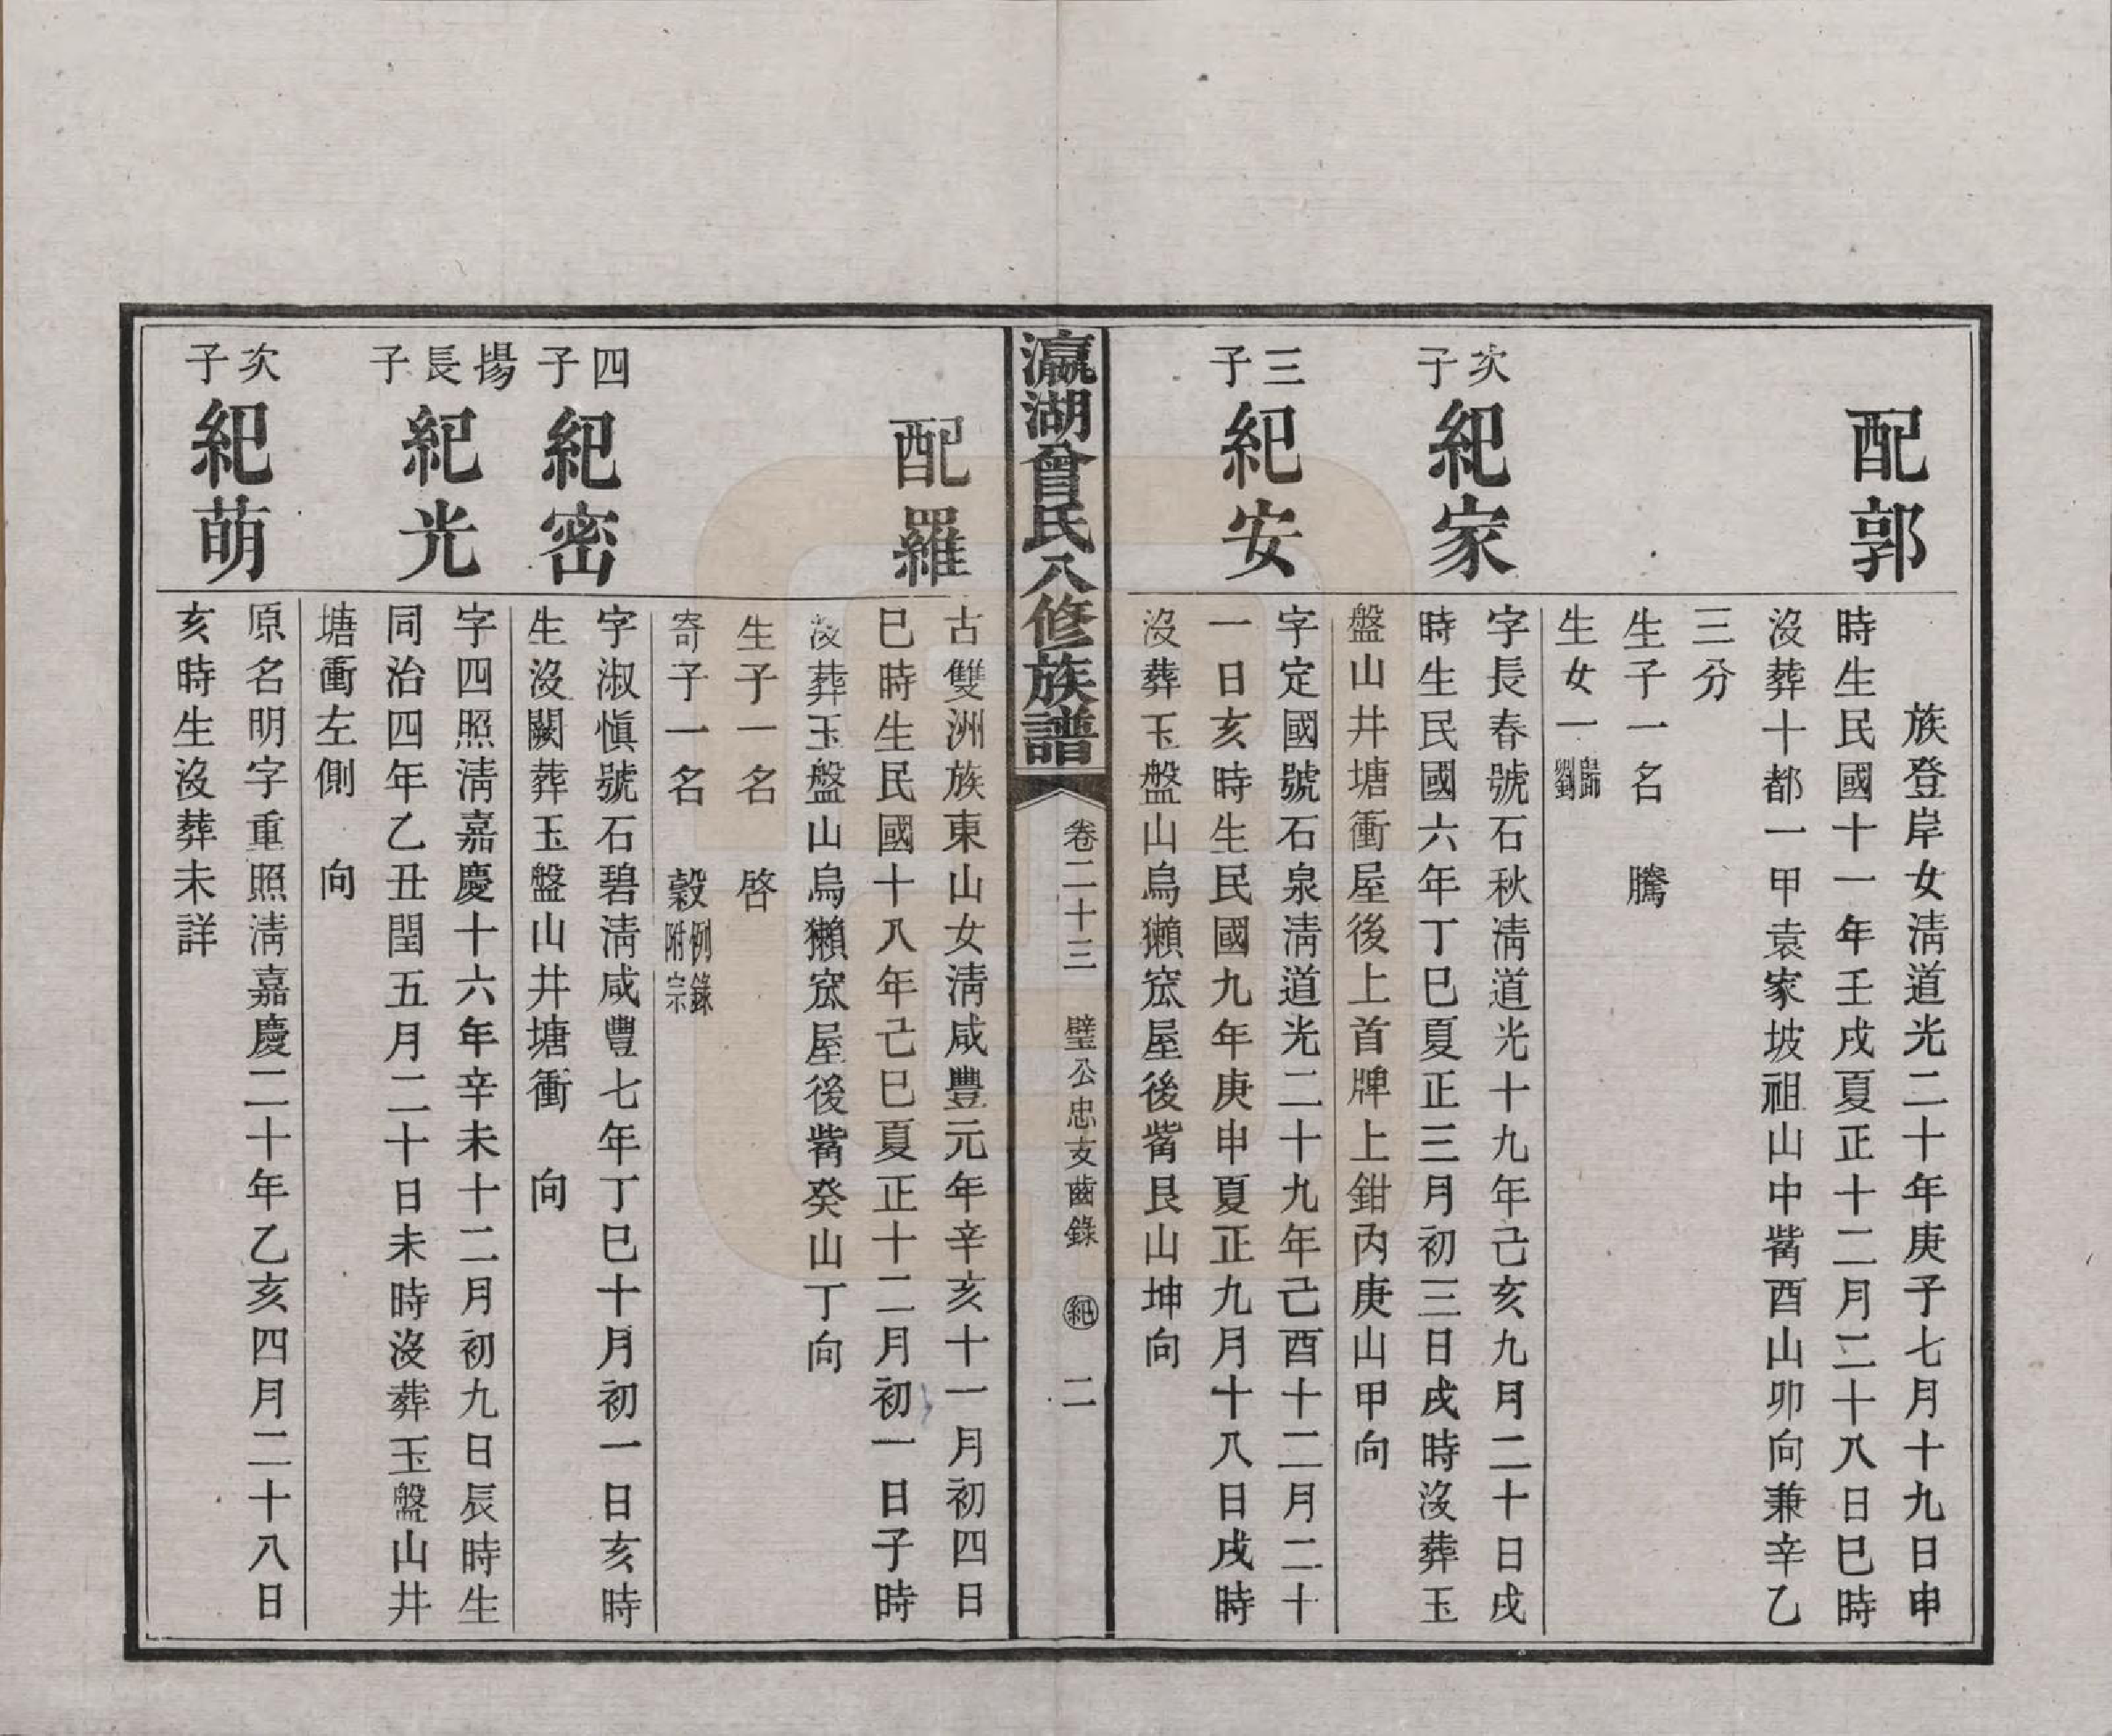 配郭
族登岸女淸道光二十年庚子七月十九日申
時生民國十一年壬戌夏正十二月二十八日巳時
沒葬十都一甲袁家坡祖山中觜酉山卯向兼辛乙
三分
生子一名　騰
生女一歸劉
次子
紀家
字長春號石秋淸道光十九年己亥九月二十日戌
時生民國六年丁巳夏正三月初三日戌時沒葬玉
盤山井塘衝屋後上首牌上鉗內庚山甲向
三子
紀安
字定國號石泉淸道光二十九年己酉十二月二十
一日亥時生民國九年庚申夏正九月十八日戌時
沒葬玉盤山烏獺窊屋後觜艮山坤向
瀛湖曾氏八修族譜
卷二十三　璧公忠支齒錄　紀　二
配羅
古雙洲族東山女淸咸豐元年辛亥十一月初四日
巳時生民國十八年己巳夏正十二月初一日子時
沒葬玉盤山烏獺窊屋後觜癸山丁向
生子一名　啓
寄子一名　穀例錄附宗
四子
紀密
字淑愼號石碧淸咸豐七年丁巳十月初一日亥時
生沒闕葬玉盤山井塘衝　向
揚長子
紀光
字四照淸嘉慶十六年辛未十二月初九日辰時生
同治四年乙丑閏五月二十日未時沒葬玉盤山井
塘衝左側　向
次子
紀萌
原名明字重照淸嘉慶二十年乙亥四月二十八日
亥時生沒葬未詳